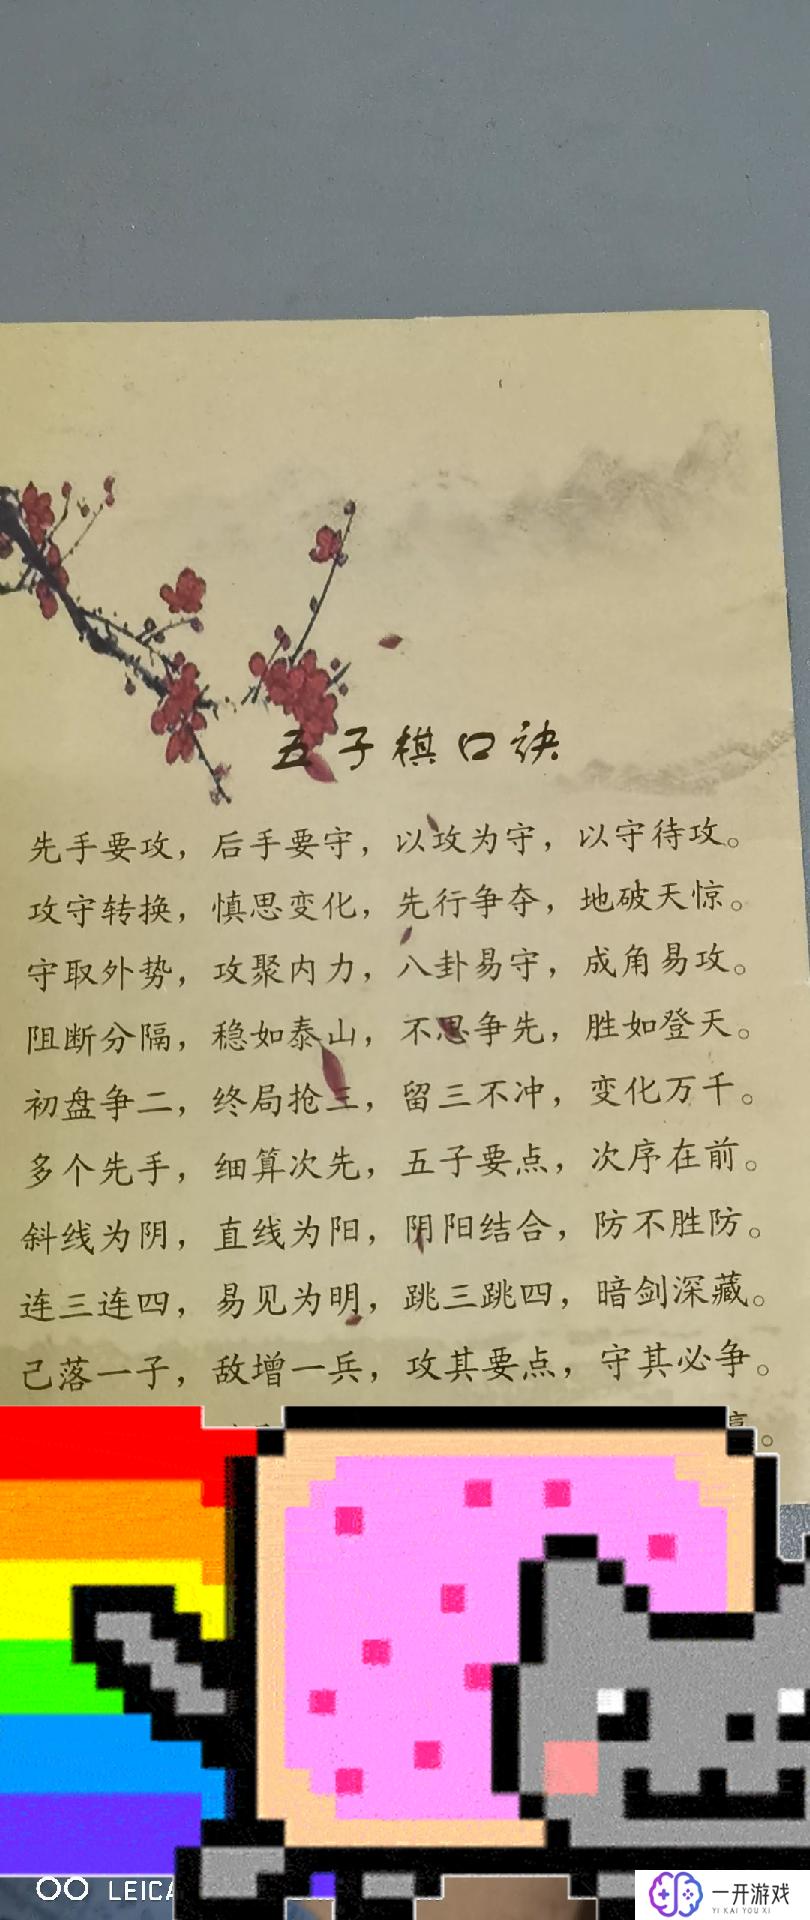 五子棋口诀
先手要攻，后手要守，以攻为守，以守待攻。
攻守转换，慎思变化，先行争夺，地破天惊。
守取外势，攻聚内力，八卦易守，成角易攻。
阻断分隔，稳如泰山，不思争先，胜如登天。
初盘争二，终局抢三，留三不冲，变化万千。
多个先手，细算次先，五子要点，次序在前。
斜线为阴，直线为阳，阴阳结合，防不胜防。
连三连四，易见为明，跳三跳四，暗剑深藏。
己落一子，敌增一兵，攻其要点，守其必争。
。
LEICA
一开游戏
YI KAI YOU XI